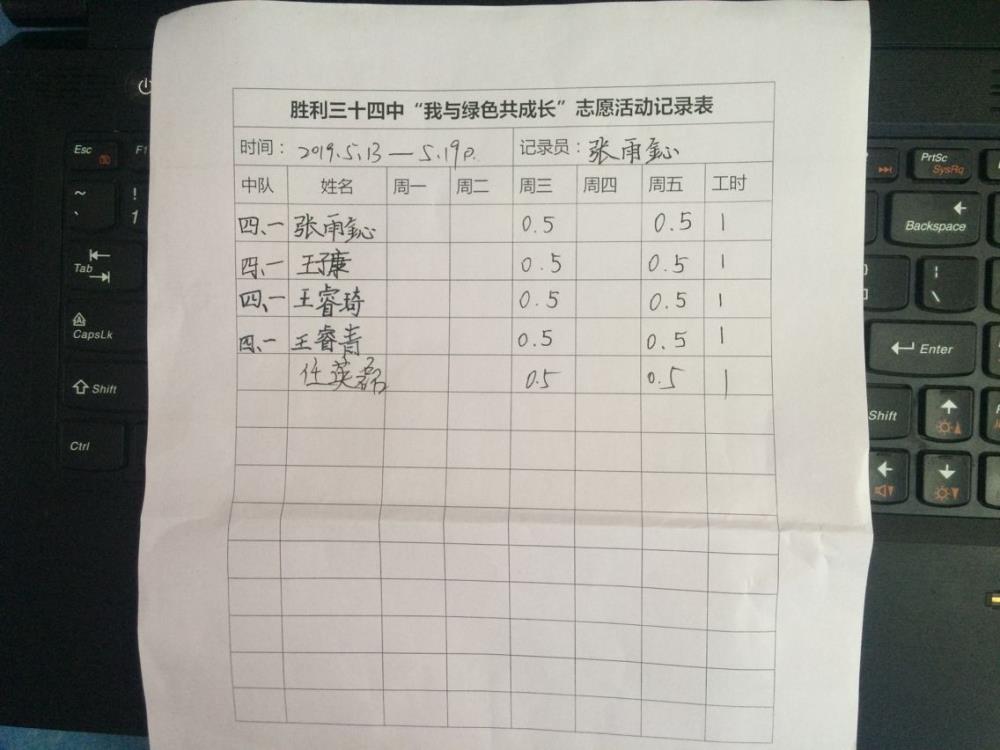 胜利三十四中“我与绿色共成长”志愿活动记录表
时间：2019.5.13—5.19 记录员：张雨鈊
中队 姓名 周一 周二 周三 周四 周五 工时
四、一 张雨鈊 0.5 0.5 1
四、一 王子康 0.5 0.5 1
四、一 王睿琦 0.5 0.5 1
四、一 王睿青 0.5 0.5 1
任英磊 0.5 0.5 1
Esc
F1
~ !
、 1
Tab
CapsLk
Shift
Ctrl
PrtSc
SysRq
Backspace
\
Enter
Shift